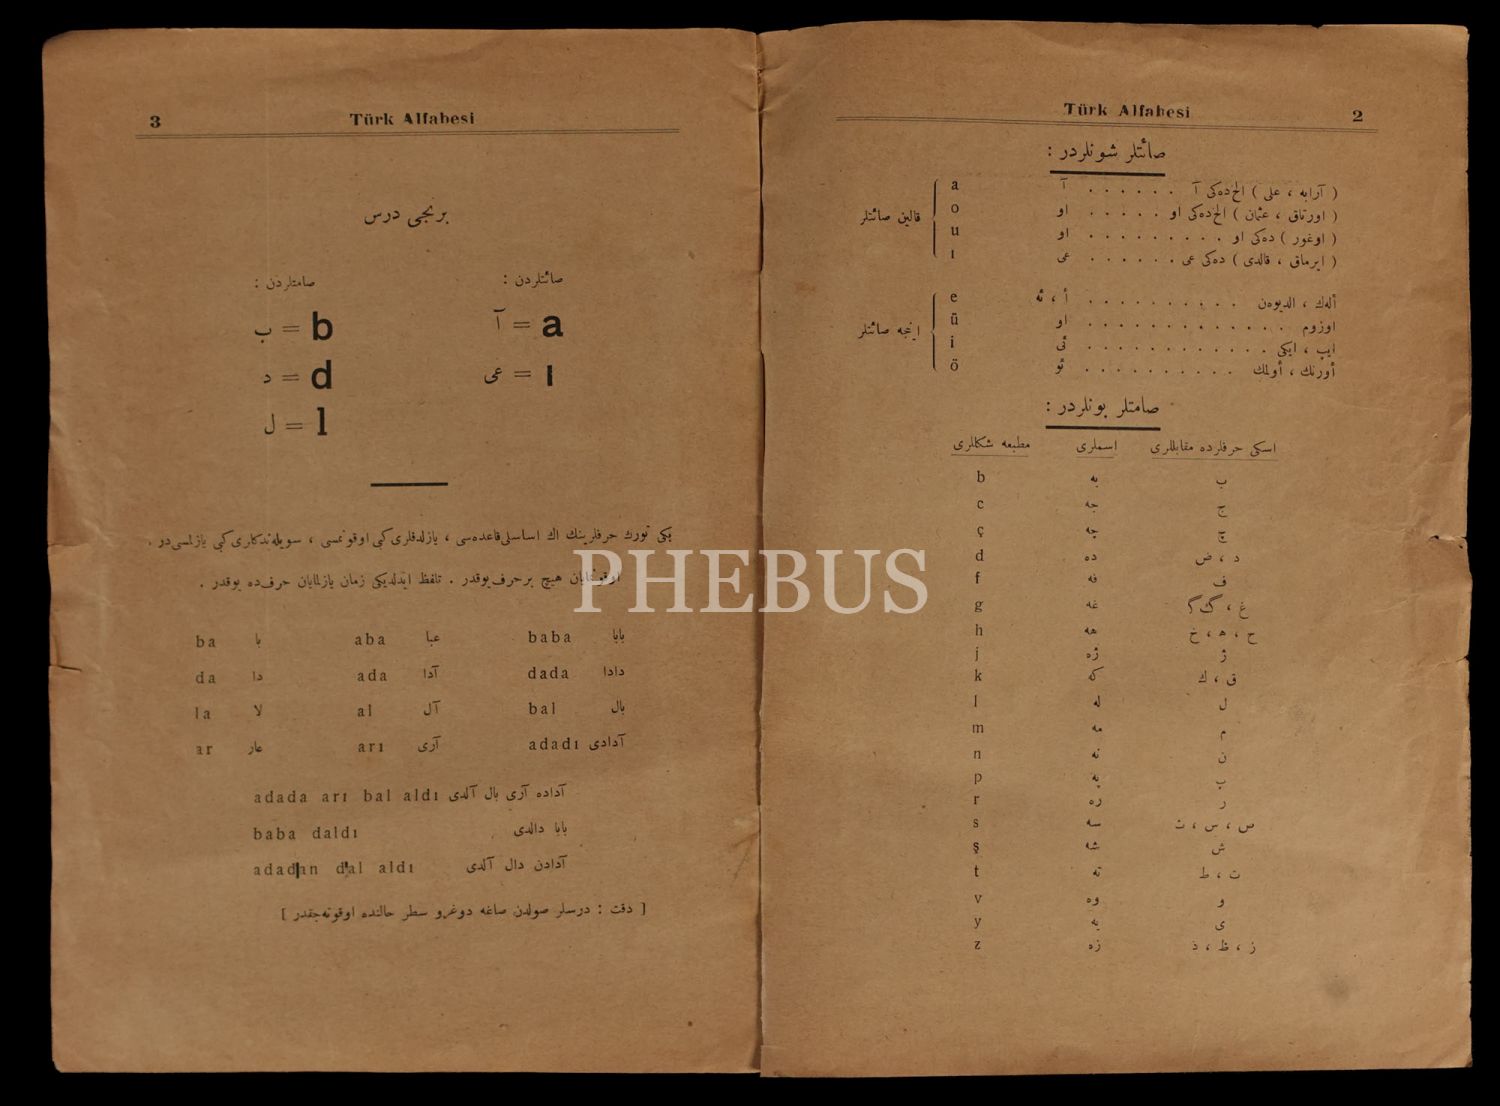 Türk Alfabesi 2
صائتلر شونلردر :
قالین صائتلر
a آ . . . . . . ( آرابه ، علی ) الخ‌ده‌کی آ
o او . . . . . ( اورتاق ، عثمان ) الخ‌ده‌کی او
u او . . . . . . . . . ( اوغور ) ده‌کی او
ı عی . . . . . . ( ایرماق ، قالدی ) ده‌کی عی
اینجه صائتلر
e أ ، ئه . . . . . . . . . . أله‌ك ، الدیوه‌ن
ü او . . . . . . . . . . . . . اوزوم
i ئی . . . . . . . . . . . . ایپ ، ایکی
ö ئو . . . . . . . . . . أورنك ، أولمك
صامتلر بونلردر :
مطبعه شکللری اسملری اسکی حرفلرده مقابللری
b به ب
c جه ج
ç چه چ
d ده د ، ض
f فه ف
g غه غ ، گ
h هه ح ، ه ، خ
j ژه ژ
k که ق ، ك
l له ل
m مه م
n نه ن
p په پ
r ره ر
s سه ص ، س ، ث
ş شه ش
t ته ت ، ط
v وه و
y یه ی
z زه ز ، ظ ، ذ
3 Türk Alfabesi
برنجی درس
صائتلردن :
a = آ
ı = عی
صامتلردن :
b = ب
d = د
l = ل
یکی تورك حرفلرینك اك اساسلی قاعده‌سی ، یازلدقلری کبی اوقونمسی ، سویله‌ندکلری کبی یازلمسی‌در .
اوقونمایان هیچ بر حرف یوقدر . تلفظ ایدلدیکی زمان یازلمایان حرف‌ده یوقدر .
ba با aba عبا baba بابا
da دا ada آدا dada دادا
la لا al آل bal بال
ar عار arı آری adadı آدادی
adada arı bal aldı آداده آری بال آلدی
baba daldı بابا دالدی
adadan dal aldı آدادن دال آلدی
[ دقت : درسلر صولدن صاغه دوغرو سطر حالنده اوقونه‌جقدر ]
PHEBUS